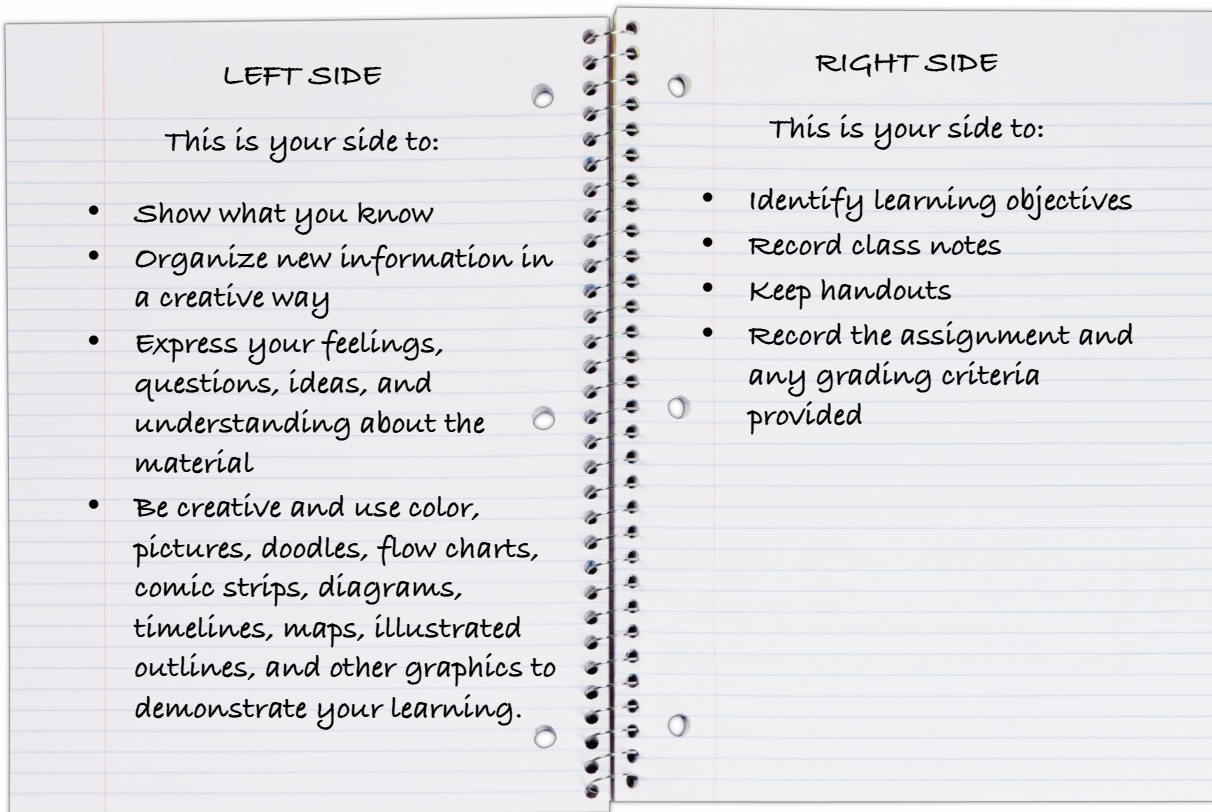 LEFT SIDE
This is your side to:
• Show what you know
• Organize new information in
a creative way
• Express your feelings,
questions, ideas, and
understanding about the
material
• Be creative and use color,
pictures, doodles, flow charts,
comic strips, diagrams,
timelines, maps, illustrated
outlines, and other graphics to
demonstrate your learning.
RIGHT SIDE
This is your side to:
• Identify learning objectives
• Record class notes
• Keep handouts
• Record the assignment and
any grading criteria
provided